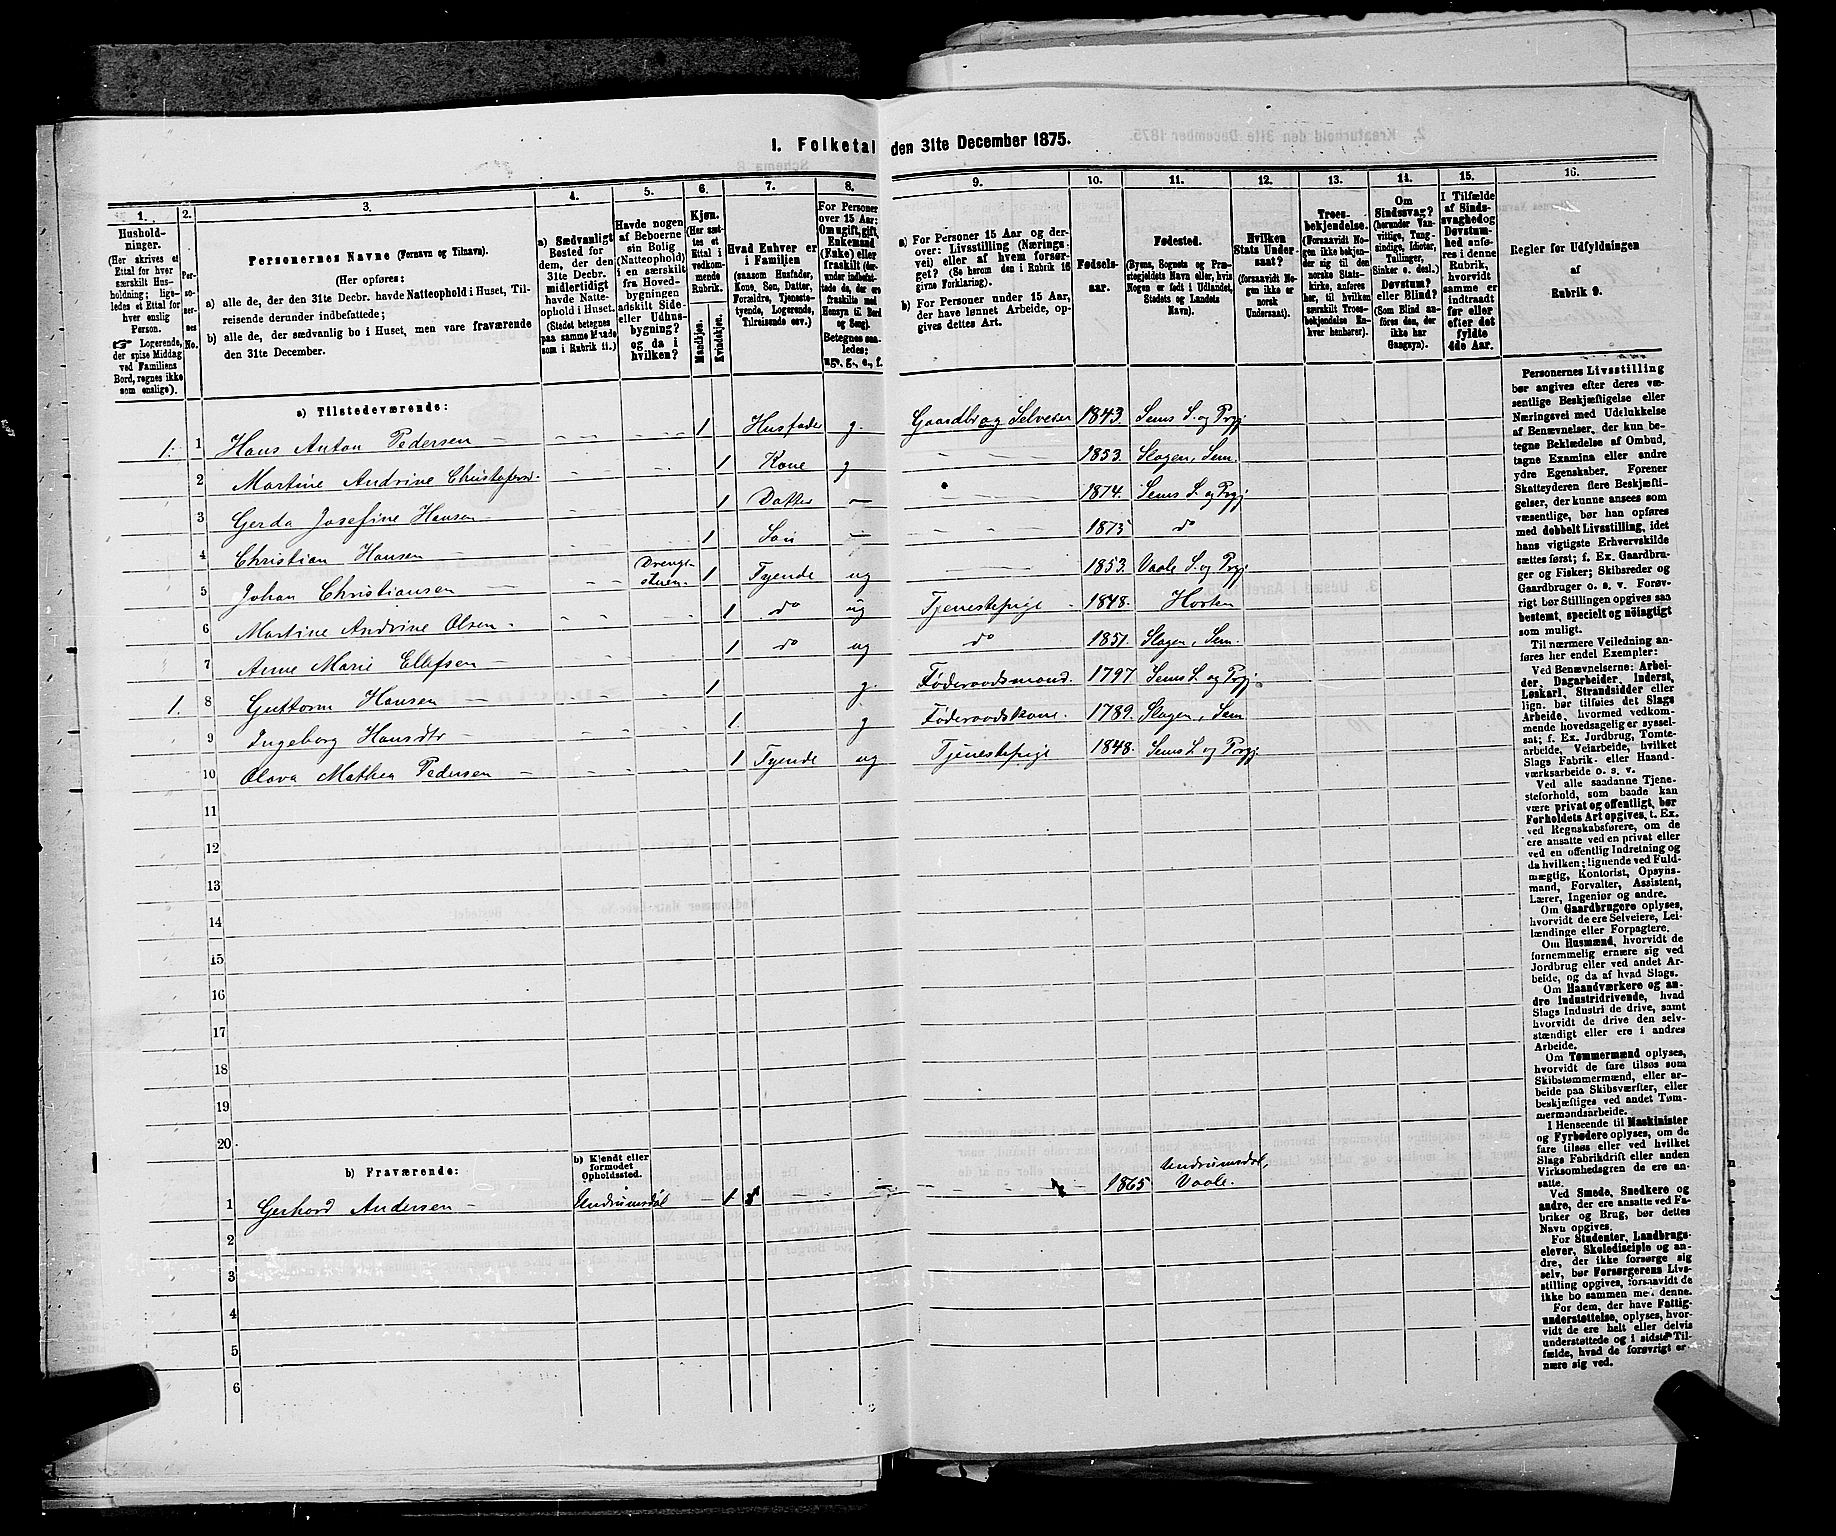 1. Folketal den 31te December 1875.
1. 2. 3. 4. 5. 6. 7. 8. 9. 10. 11. 12. 13. 14. 15. 16.
Husholdninger. (Her skrives et Ettal for hver særskilt Husholdning; ligeledes et Ettal for hver enslig Person. ☞ Logerende, der spise Middag ved Familiens Bord, regnes ikke som enslige).
Personernes No.
Personernes Navne (Fornavn og Tilnavn).
(Her opføres:
a) alle de, der den 31te Decbr. havde Natteophold i Huset, Tilreisende derunder indbefattede;
b) alle de, der sædvanlig bo i Huset, men vare fraværende den 31te December.
a) Sædvanligt Bosted for dem, der den 31te Decbr. midlertidigt havde Natteophold i Huset. (Stedet betegnes paa samme Maade som i Rubrik 11.)
Havde nogen af Beboerne sin Bolig (Natteophold) i en særskilt fra Hovedbygningen adskilt Side- eller Udhusbygning? og da i hvilken?
Kjøn. (Her sættes et Ettal i vedkommende Rubrik.
Mandkjøn.
Kvindekjøn.
Hvad Enhver er i Familien (saasom Husfader, Kone, Søn, Datter, Forældre, Tjenestetyende, Logerende, Tilreisende osv.)
For Personer over 15 Aar: Om ugift, gift, Enkemand (Enke) eller fraskilt
Betegnes saaledes: ug., g., e., f.
a) For Personer 15 Aar og derover: Livsstilling (Næringsvei) eller af hvem forsørget? (Se herom den i Rubrik 16 givne Forklaring).
b) For Personer under 15 Aar, der have lønnet Arbeide, opgives dettes Art.
Fødselsaar.
Fødested. (Byens, Sognets og Præstegjeldets Navn eller, hvis Nogen er født i Udlandet, Stedets og Landets Navn).
Hvilken Stats Undersaat? (forsaavidt Nogen ikke er norsk Undersaat).
Troesbekjendelse. (Forsaavidt Nogen ikke bekjender sig til den norske Statskirke, anføres her, til hvilken særskilt Troesbekjendelse Enhver henhører).
Om Sindssvag? (herunder Vanvittige, Tungsindige, Idioter, Tullinger, Sinker o. desl.) Døvstum? eller Blind? (Som Blind anføres den, der ikke har Gangsyn).
I Tilfælde af Sindssvaghed og Døvstumhed anføres i denne Rubrik, hvorvidt samme er indtraadt før eller efter det fyldte 4de Aar.
Regler for Udfyldningen af Rubrik 9.
a) Tilstedeværende:
1. 1 Hans Anton Pedersen 1 Husfader g. Gaardbr og Selveier 1843. Sems S. og Prgj
2 Martine Andrine Christofersd. 1 Kone g 1853. Slagen, Sem.
3 Gerda Josefine Hansen 1 Datter 1874. Sems S. og Prgj
4 Christian Hansen 1 Søn 1875 do
5 Johan Christiansen Drengestuen 1 Tyende ug 1853. Vaale S. og Prgj.
6 Martine Andrine Olsen 1 do ug Tjenestepige 1848. Horten
7 Anne Marie Ellefsen 1 do ug do 1851. Slagen, Sem.
1. 8 Guttorm Hansen 1 g. Føderaadsmand. 1797 Sems S. og Prgj.
9 Ingeborg Hansdtr 1 g Føderaadskone. 1789. Slagen, Sem
10 Olava Mathea Pedersen 1 Tyende ug Tjenestepige 1848. Sems S. og Prgj
11
12
13
14
15
16
17
18
19
20
b) Fraværende:
b) Kjendt eller formodet Opholdssted.
1 Gerhard Andersen Undrumsdal 1 1865 Undrumsdal, Vaale.
2
3
4
5
6
Personernes Livsstilling
bør angives efter deres væ-
sentlige Beskjæftigelse eller
Næringsvei med Udelukkelse
af Benævnelser, der kun be-
tegne Beklædelse af Ombud,
tagne Examina eller andre
ydre Egenskaber. Forener
Skatteyderen flere Beskjæfti-
gelser, der kunne ansees som
væsentlige, bør han opføres
med dobbelt Livsstilling, idet
hans vigtigste Erhvervskilde
sættes først; f. Ex. Gaardbru-
ger og Fisker; Skibsreder og
Gaardbruger o. s. v. Forøv-
rigt bør Stillingen opgives saa
bestemt, specielt og nöiagtigt
som muligt.
Til nærmere Veiledning an-
føres her endel Exempler:
Ved Benævnelserne: Arbei-
der, Dagarbeider, Inderst,
Løskarl, Strandsidder eller
lign. bør tilføies det Slags
Arbeide, hvormed vedkom-
mende hovedsagelig er syssel-
sat; f. Ex. Jordbrug, Tomte-
arbeide, Veiarbeide, hvilket
Slags Fabrik- eller Haand-
værksarbeide o. s. v.
Ved alle saadanne Tjene-
steforhold, som baade kan
være privat og offentligt, bør
Forholdets Art opgives, t. Ex.
ved Regnskabsførere, om de
ere ansatte ved en privat eller
ved en offentlig Indretning og
da hvilken; lignende ved Fuld-
mægtig, Kontorist, Opsyns-
mand, Forvalter, Assistent,
Lærer, Ingeniør og andre.
Om Gaardbrugere oplyses,
hvorvidt de ere Selveiere, Lei-
lændinge eller Forpagtere.
Om Husmænd, hvorvidt de
fornemmelig ernære sig ved
Jordbrug eller ved andet Ar-
beide, og da af hvad Slags.
Om Haandværkere og an-
dre Industridrivende, hvad
Slags Industri de drive, samt
hvorvidt de drive den selv-
stændigt eller ere i andres
Arbeide.
Om Tømmermænd oplyses,
hvorvidt de fare tilsøs som
Skibstømmermænd, eller ar-
beide paa Skibsværfter, eller
beskjæftiges ved andet Tøm-
mermandsarbeide.
I Henseende til Maskinister
og Fyrbødere oplyses, om de
fare tilsøs eller ved hvilket
Slags Fabrikdrift eller anden
Virksomhedsgren de ere an-
satte.
Ved Smede, Snedkere og
andre, der ere ansatte ved Fa-
briker og Brug, bør dettes
Navn opgives.
For Studenter, Landbrugs-
elever, Skoledisciple og an-
dre, der ikke forsørge sig
selv, bør Forsørgerens Livs-
stilling opgives, forsaavidt de
ikke bo sammen med denne.
For dem, der have Fattig-
understøttelse, oplyses, hvor-
vidt de ere helt eller delvis
understøttede og i sidste Til-
fælde, hvad de forøvrigt er-
nære sig ved.